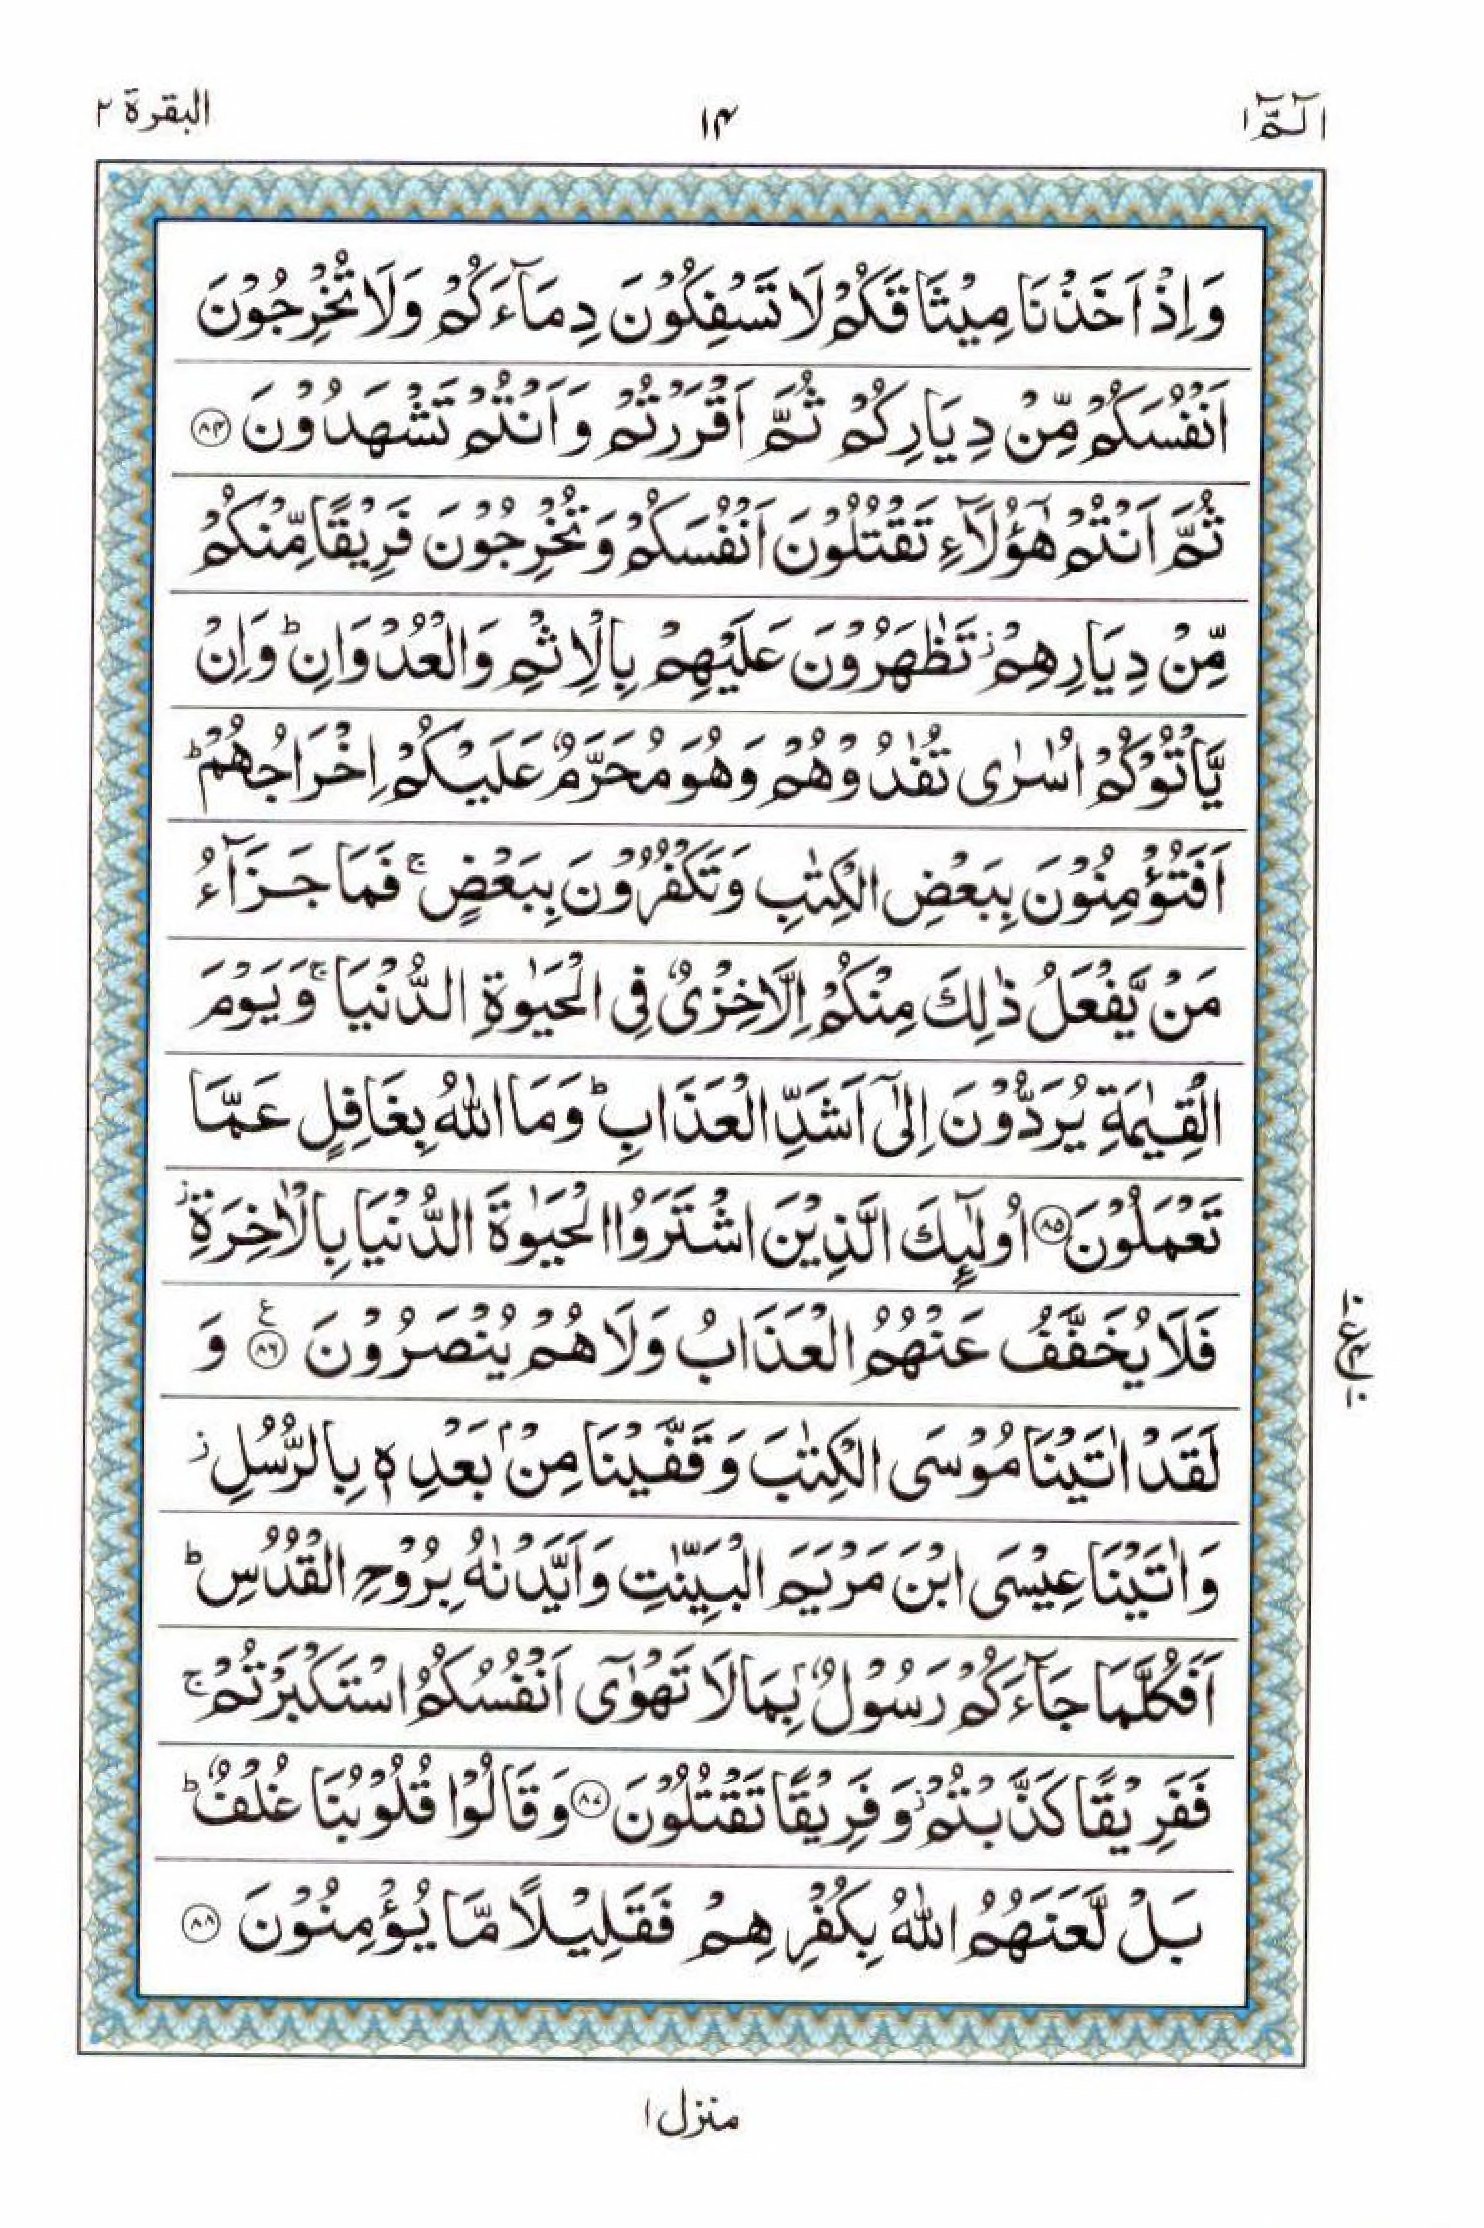 الٓمّٓ ١
١٤
البقرة ٢
وَاِذْ اَخَذْنَا مِيْثَاقَكُمْ لَا تَسْفِكُوْنَ دِمَآءَكُمْ وَلَا تُخْرِجُوْنَ
اَنْفُسَكُمْ مِّنْ دِيَارِكُمْ ثُمَّ اَقْرَرْتُمْ وَاَنْتُمْ تَشْهَدُوْنَ ﴿٨٤﴾
ثُمَّ اَنْتُمْ هٰٓؤُلَآءِ تَقْتُلُوْنَ اَنْفُسَكُمْ وَتُخْرِجُوْنَ فَرِيْقًا مِّنْكُمْ
مِّنْ دِيَارِهِمْ ز تَظٰهَرُوْنَ عَلَيْهِمْ بِالْاِثْمِ وَالْعُدْوَانِ ؕ وَاِنْ
يَّاْتُوْكُمْ اُسٰرٰى تُفٰدُوْهُمْ وَهُوَ مُحَرَّمٌ عَلَيْكُمْ اِخْرَاجُهُمْ ؕ
اَفَتُؤْمِنُوْنَ بِبَعْضِ الْكِتٰبِ وَتَكْفُرُوْنَ بِبَعْضٍ ۚ فَمَا جَزَآءُ
مَنْ يَّفْعَلُ ذٰلِكَ مِنْكُمْ اِلَّا خِزْيٌ فِى الْحَيٰوةِ الدُّنْيَا ۚ وَيَوْمَ
الْقِيٰمَةِ يُرَدُّوْنَ اِلٰٓى اَشَدِّ الْعَذَابِ ؕ وَمَا اللّٰهُ بِغَافِلٍ عَمَّا
تَعْمَلُوْنَ ﴿٨٥﴾ اُولٰٓئِكَ الَّذِيْنَ اشْتَرَوُا الْحَيٰوةَ الدُّنْيَا بِالْاٰخِرَةِ ز
فَلَا يُخَفَّفُ عَنْهُمُ الْعَذَابُ وَلَا هُمْ يُنْصَرُوْنَ ﴿٨٦﴾ ع وَ
لَقَدْ اٰتَيْنَا مُوْسَى الْكِتٰبَ وَقَفَّيْنَا مِنْۢ بَعْدِهٖ بِالرُّسُلِ ز
وَاٰتَيْنَا عِيْسَى ابْنَ مَرْيَمَ الْبَيِّنٰتِ وَاَيَّدْنٰهُ بِرُوْحِ الْقُدُسِ ؕ
اَفَكُلَّمَا جَآءَكُمْ رَسُوْلٌۢ بِمَا لَا تَهْوٰٓى اَنْفُسُكُمُ اسْتَكْبَرْتُمْ ۚ
فَفَرِيْقًا كَذَّبْتُمْ ز وَفَرِيْقًا تَقْتُلُوْنَ ﴿٨٧﴾ وَقَالُوْا قُلُوْبُنَا غُلْفٌ ؕ
بَلْ لَّعَنَهُمُ اللّٰهُ بِكُفْرِهِمْ فَقَلِيْلًا مَّا يُؤْمِنُوْنَ ﴿٨٨﴾
منزل ١